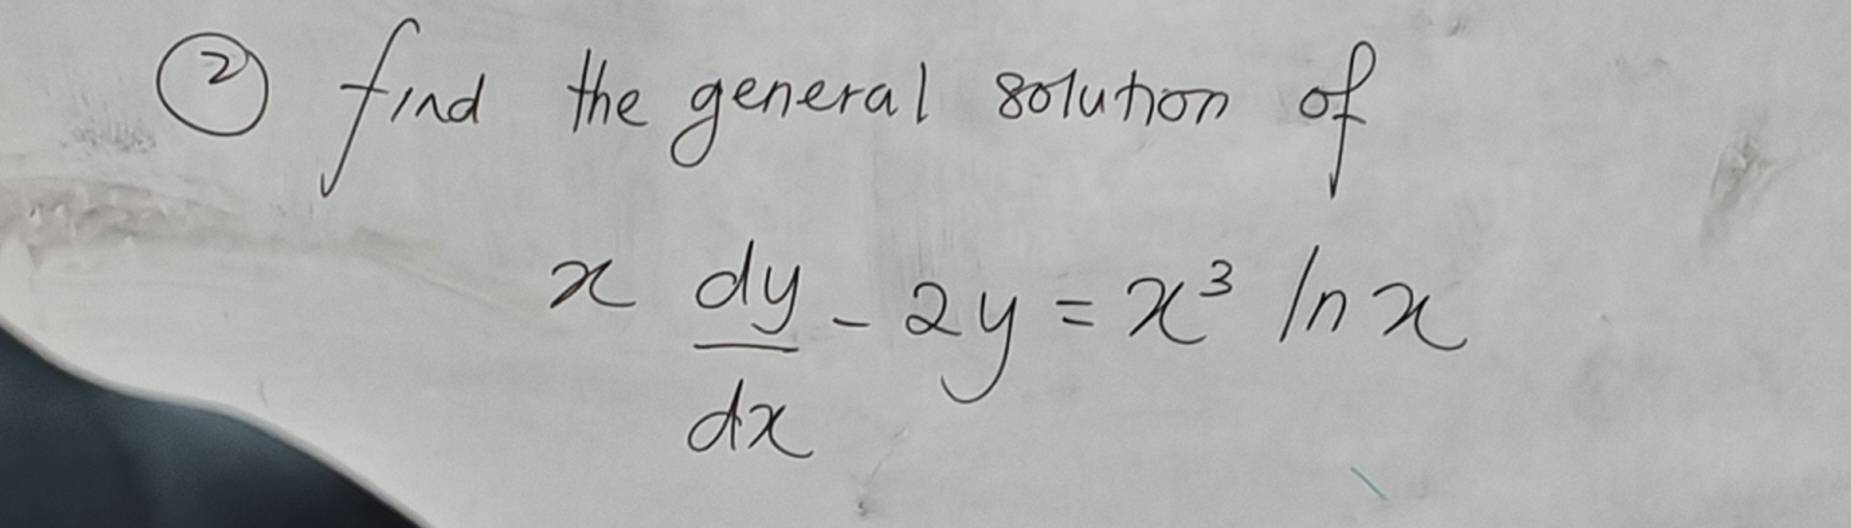 ② find the general solution of
x dy/dx - 2y = x³ ln x